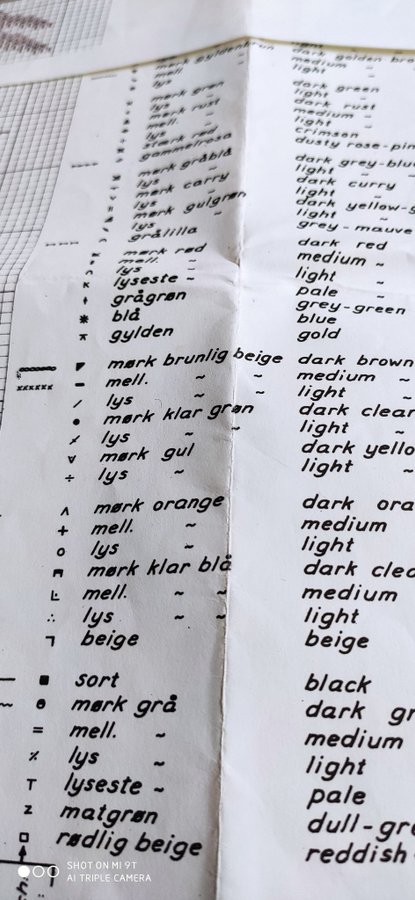 mørk gyldenbrun dark golden bro
mell. ~ medium ~
lys ~ light ~
mørk grøn dark green
lys ~ light ~
mørk rust dark rust
mell. ~ medium ~
lys ~ light ~
stærk rød crimson
gammelrosa dusty rose-pin
mørk gråblå dark grey-blue
lys ~ light ~ ~
mørk carry dark curry
lys ~ light ~
mørk gulgrøn dark yellow-g
lys ~ light ~
grålilla grey-mauve
mørk rød dark red
mell. ~ medium ~
lys ~ light ~
lyseste ~ pale ~
grågrøn grey-green
blå blue
gylden gold
mørk brunlig beige dark brown
mell. ~ ~ medium ~
lys ~ ~ light ~
mørk klar grøn dark clear
lys ~ ~ light ~
mørk gul dark yello
lys ~ light ~
mørk orange dark ora
mell. ~ medium
lys ~ light
mørk klar blå dark clea
mell. ~ ~ medium
lys ~ ~ light
beige beige
sort black
mørk grå dark gr
mell. ~ medium
lys ~ light
lyseste ~ pale
matgrøn dull-gre
rødlig beige reddish
SHOT ON MI 9T
AI TRIPLE CAMERA